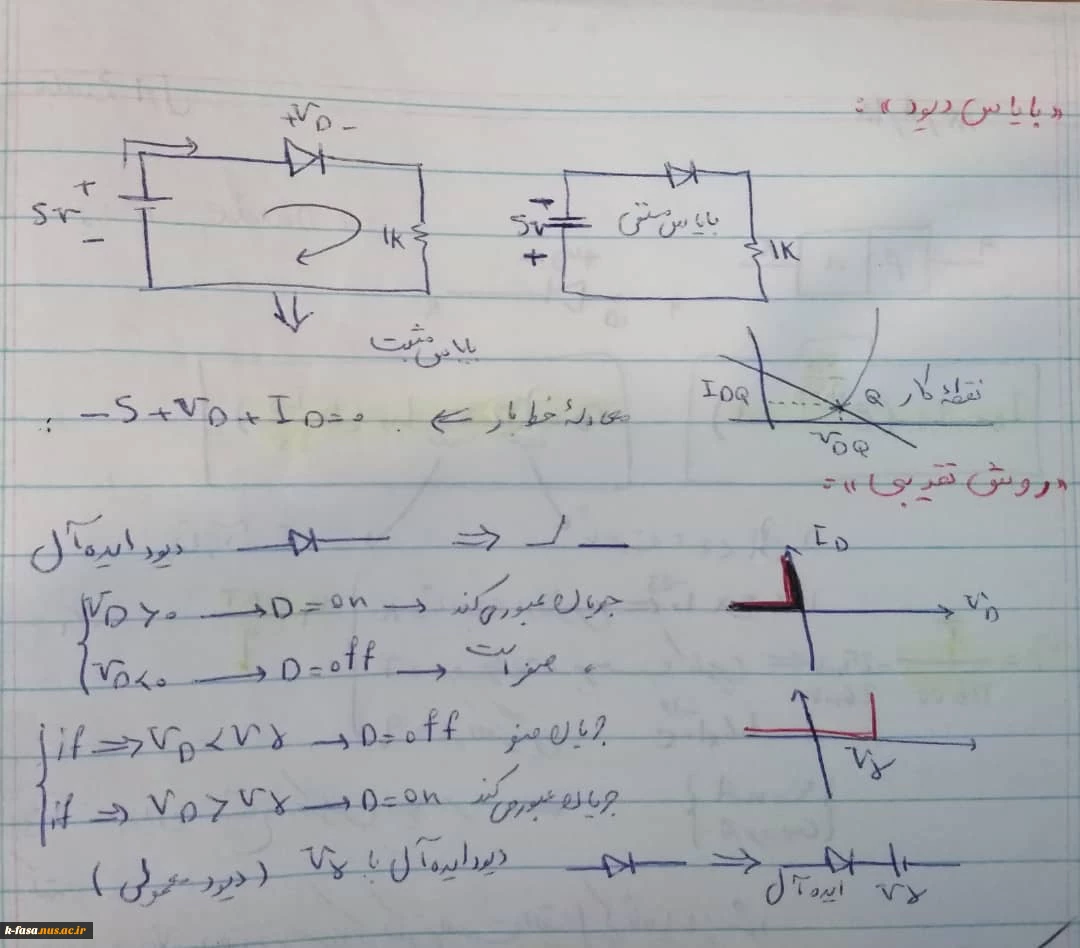 «بایاس دیود»:
+VD-
5v
+
-
1K
5v
-
+
بایاس منفی
1K
بایاس مثبت
IDQ
Q
نقطهٔ کار
VDQ
-5+VD+ID=0 ← معادلهٔ خط بار
«روش تقریبی»:
دیود ایده آل ⇒
ID
VD
VD>0 → D=on → جریان عبور می کند
VD<0 → D=off → صفر است
if ⇒ VD<Vγ → D=off جریان صفر
Vγ
if ⇒ VD>Vγ → D=on جریان عبور می کند
دیود ایده آل با Vγ (دیود معمولی) ⇒
ایده آل
Vγ
k-fasa.nus.ac.ir